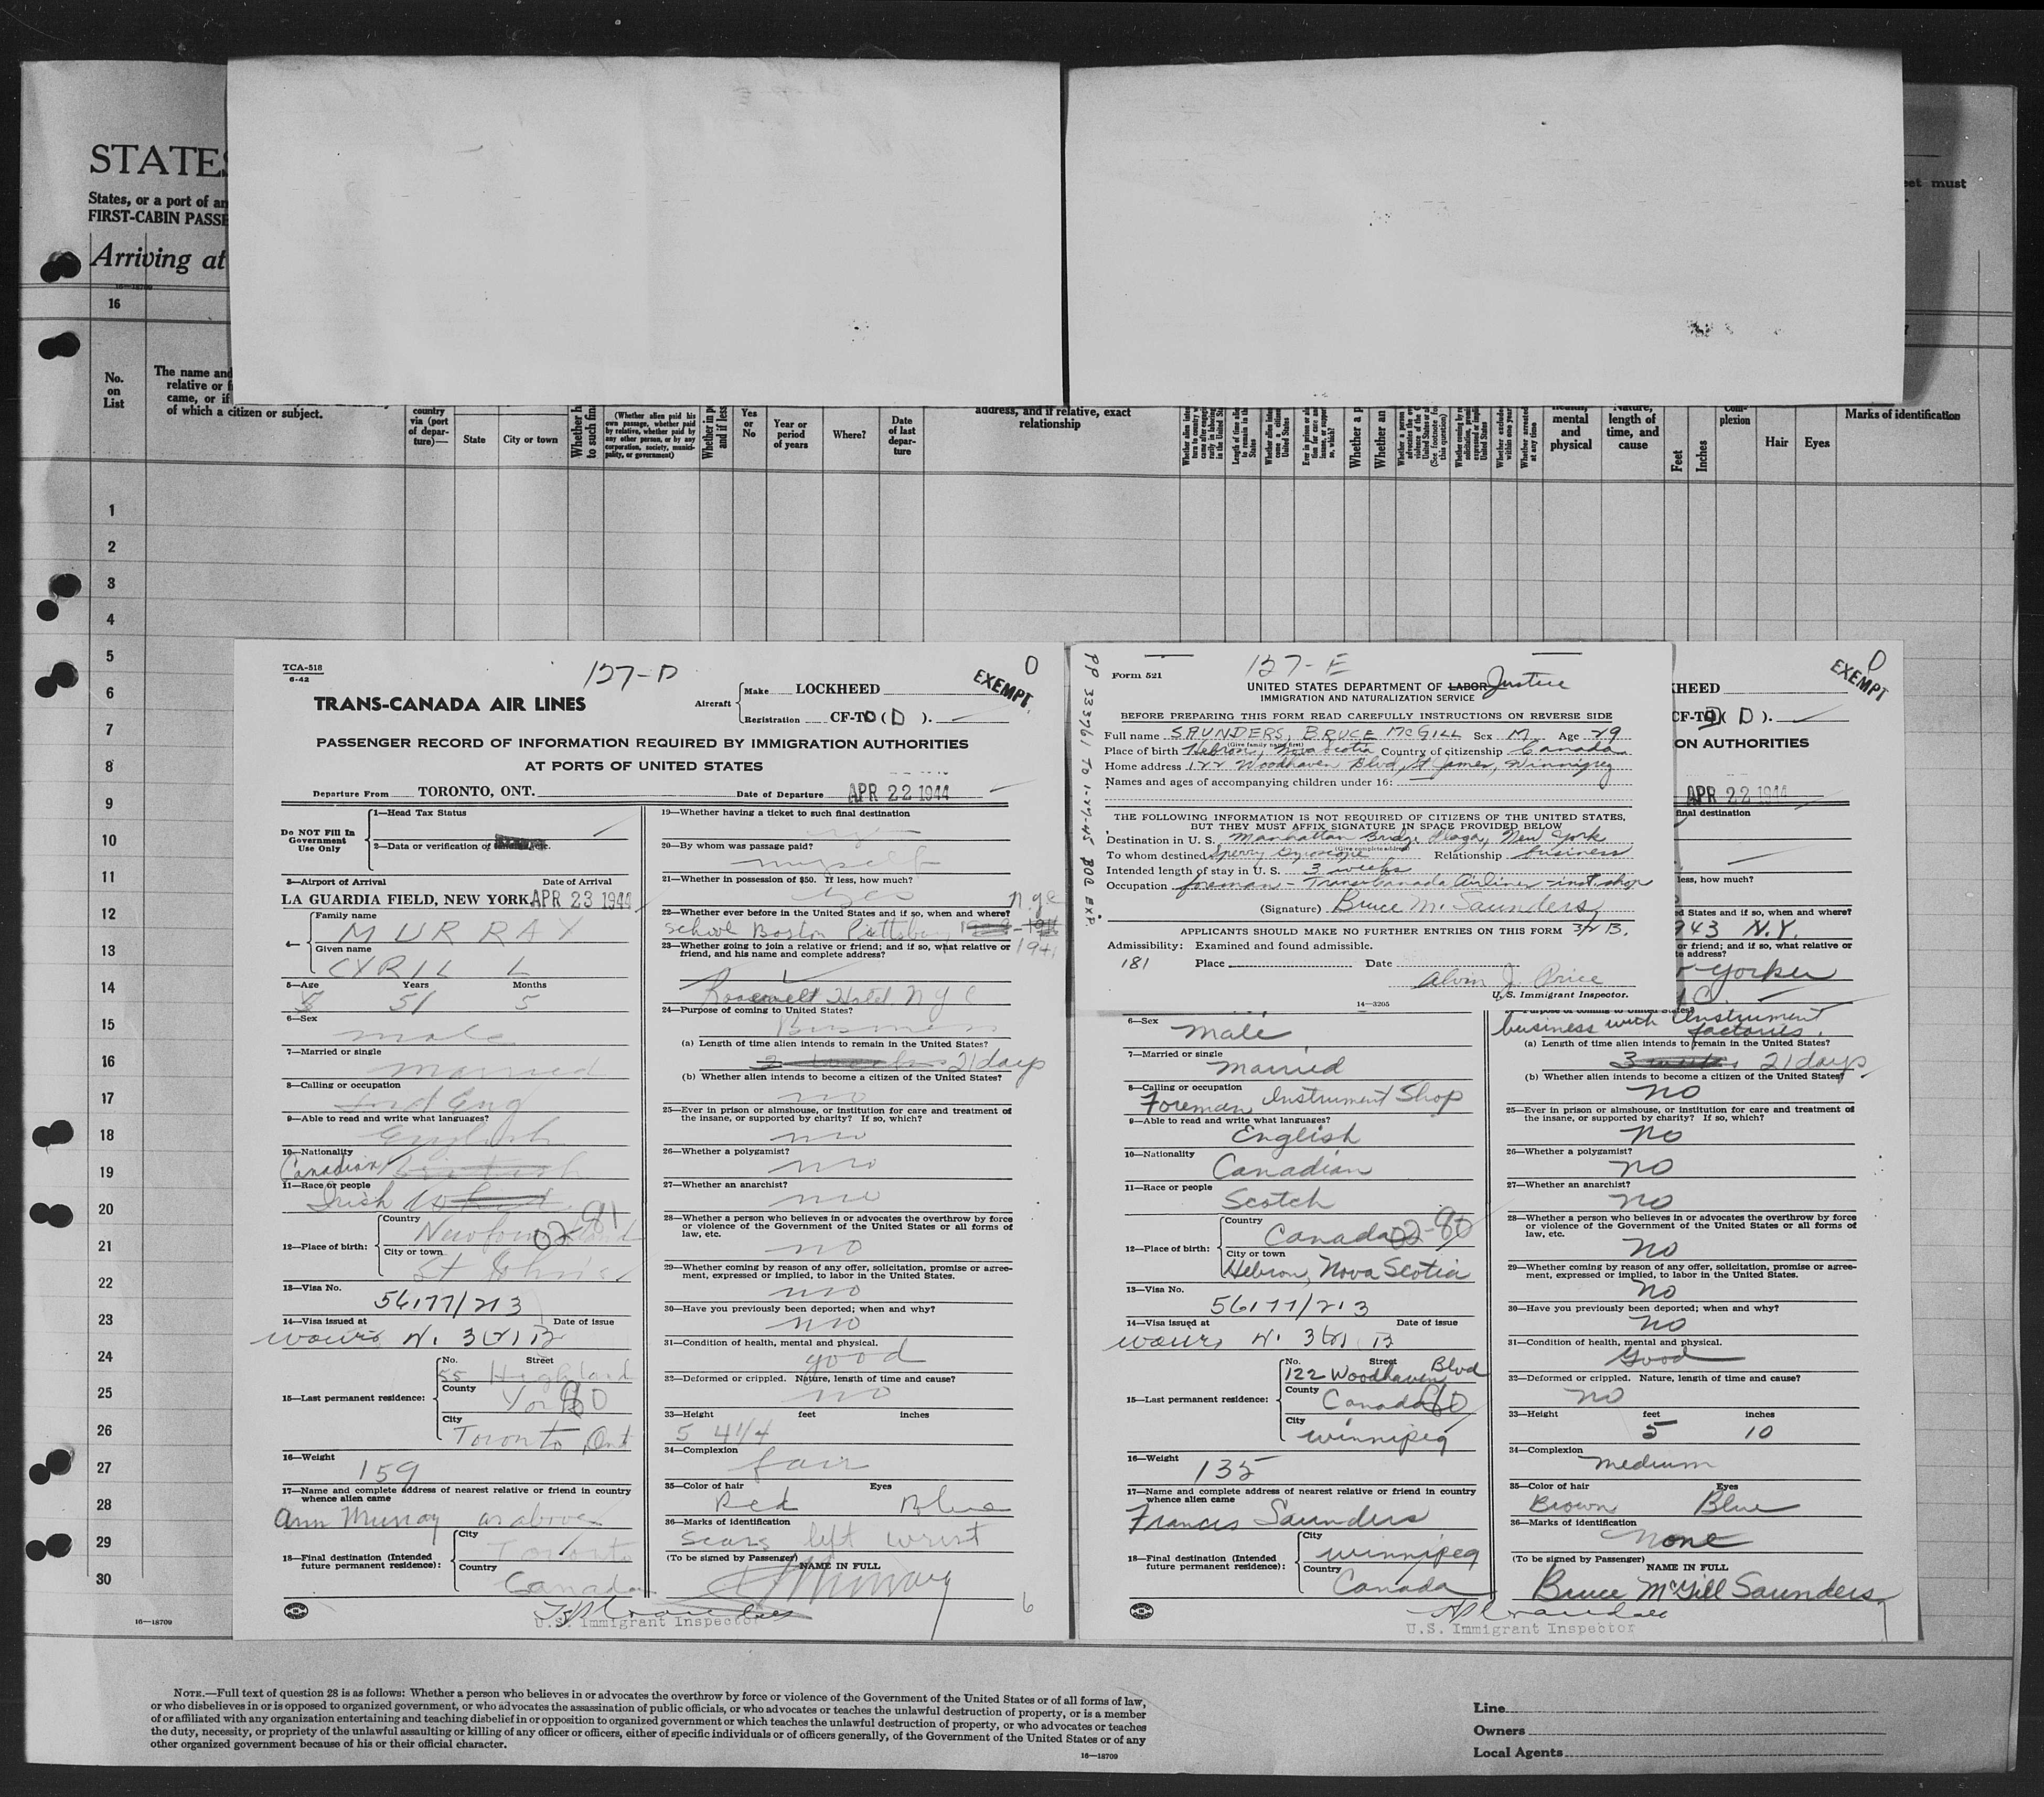 STATES
States, or a port of an
FIRST-CABIN PASSE
Arriving at
et must
16
No. on List
The name and
relative or f
came, or if
of which a citizen or subject.
country via (port of depar- ture)—
State
City or town
Whether h
to such fin
(Whether alien paid his own passage, whether paid by relative, whether paid by any other person, or by any corporation, society, munici- pality, or government)
Whether in p
and if less
Yes or No
Year or period of years
Where?
Date of last depar- ture
address, and if relative, exact relationship
Whether a p
Whether an
health, mental and physical
Nature, length of time, and cause
Feet
Inches
Com- plexion
Hair
Eyes
Marks of identification
1
2
3
4
5
6
7
8
9
10
11
12
13
14
15
16
17
18
19
20
21
22
23
24
25
26
27
28
29
30
16—18709
TCA-518
6-42
127-D
0
EXEMPT
TRANS-CANADA AIR LINES
Aircraft
Make LOCKHEED
Registration CF-TC (D).
PASSENGER RECORD OF INFORMATION REQUIRED BY IMMIGRATION AUTHORITIES
AT PORTS OF UNITED STATES
Departure From TORONTO, ONT. Date of Departure APR 22 1944
Do NOT Fill In Government Use Only
1—Head Tax Status
2—Data or verification of etc.
3—Airport of Arrival Date of Arrival
LA GUARDIA FIELD, NEW YORK APR 23 1944
4— Family name
MURRAY
Given name
CYRIL L
5—Age Years Months
51 5
6—Sex
male
7—Married or single
married
8—Calling or occupation
Ind Eng
9—Able to read and write what languages?
English
10—Nationality
Canadian
11—Race or people
Irish
12—Place of birth: Country
Newfoundland 02-81
City or town
St John's
13—Visa No.
56177/213
14—Visa issued at Date of issue
3(2) B
15—Last permanent residence: No. Street
55 Highland
County
York 80
City
Toronto Ont
16—Weight
159
17—Name and complete address of nearest relative or friend in country whence alien came
Ann Murray as above
18—Final destination (Intended future permanent residence): City
Toronto
Country
Canada
19—Whether having a ticket to such final destination
yes
20—By whom was passage paid?
myself
21—Whether in possession of $50. If less, how much?
yes
22—Whether ever before in the United States and if so, when and where? N.Y.C.
School Boston Pittsburg 1941
23—Whether going to join a relative or friend; and if so, what relative or friend, and his name and complete address?
Roosevelt Hotel N Y C
24—Purpose of coming to United States?
Business
(a) Length of time alien intends to remain in the United States?
2 weeks 21 days
(b) Whether alien intends to become a citizen of the United States?
no
25—Ever in prison or almshouse, or institution for care and treatment of the insane, or supported by charity? If so, which?
no
26—Whether a polygamist?
no
27—Whether an anarchist?
no
28—Whether a person who believes in or advocates the overthrow by force or violence of the Government of the United States or all forms of law, etc.
no
29—Whether coming by reason of any offer, solicitation, promise or agree- ment, expressed or implied, to labor in the United States.
no
30—Have you previously been deported; when and why?
no
31—Condition of health, mental and physical.
good
32—Deformed or crippled. Nature, length of time and cause?
no
33—Height feet inches
5 4 1/4
34—Complexion
fair
35—Color of hair Eyes
Red Blue
36—Marks of identification
Scars left wrist
(To be signed by Passenger) NAME IN FULL
C L Murray
U.S. Immigrant Inspector
6
127-E
Form 521
UNITED STATES DEPARTMENT OF LABOR Justice
IMMIGRATION AND NATURALIZATION SERVICE
BEFORE PREPARING THIS FORM READ CAREFULLY INSTRUCTIONS ON REVERSE SIDE
Full name SAUNDERS, BRUCE McGILL Sex M Age 29
(Give family name first)
Place of birth Hebron, Nova Scotia Country of citizenship Canada
Home address 122 Woodhaven Blvd, St James, Winnipeg
Names and ages of accompanying children under 16:
THE FOLLOWING INFORMATION IS NOT REQUIRED OF CITIZENS OF THE UNITED STATES,
BUT THEY MUST AFFIX SIGNATURE IN SPACE PROVIDED BELOW
Destination in U. S. Manhattan Bridge Plaza, New York
(Give complete address)
To whom destined Sperry Gyroscope Relationship business
Intended length of stay in U. S. 3 weeks
Occupation foreman - Trans-Canada Airlines - inst. shop
(Signature) Bruce M. Saunders
APPLICANTS SHOULD MAKE NO FURTHER ENTRIES ON THIS FORM 3(2) B.
Admissibility: Examined and found admissible.
181 Place Date
Alvin J. Price
U. S. Immigrant Inspector.
14—3205
PP 333761 TO 1-27-45 BOR EXP.
0
EXEMPT
KHEED
CF-T (D).
ON AUTHORITIES
APR 22 1944
final destination
less, how much?
ed States and if so, when and where?
943 N.Y.
or friend; and if so, what relative or
te address?
Yorker
6—Sex
male
7—Married or single
married
8—Calling or occupation
Foreman Instrument Shop
9—Able to read and write what languages?
English
10—Nationality
Canadian
11—Race or people
Scotch
12—Place of birth: Country
Canada 02-80
City or town
Hebron, Nova Scotia
13—Visa No.
56177/213
14—Visa issued at Date of issue
3(2) B
15—Last permanent residence: No. Street
122 Woodhaven Blvd
County
Canada 80
City
Winnipeg
16—Weight
135
17—Name and complete address of nearest relative or friend in country whence alien came
Francis Saunders
18—Final destination (Intended future permanent residence): City
Winnipeg
Country
Canada
business with Instrument factories.
(a) Length of time alien intends to remain in the United States?
3 weeks 21 days
(b) Whether alien intends to become a citizen of the United States?
no
25—Ever in prison or almshouse, or institution for care and treatment of the insane, or supported by charity? If so, which?
no
26—Whether a polygamist?
no
27—Whether an anarchist?
no
28—Whether a person who believes in or advocates the overthrow by force or violence of the Government of the United States or all forms of law, etc.
no
29—Whether coming by reason of any offer, solicitation, promise or agree- ment, expressed or implied, to labor in the United States.
no
30—Have you previously been deported; when and why?
no
31—Condition of health, mental and physical.
Good
32—Deformed or crippled. Nature, length of time and cause?
no
33—Height feet inches
5 10
34—Complexion
medium
35—Color of hair Eyes
Brown Blue
36—Marks of identification
none
(To be signed by Passenger) NAME IN FULL
Bruce McGill Saunders
U.S. Immigrant Inspector
7
NOTE.—Full text of question 28 is as follows: Whether a person who believes in or advocates the overthrow by force or violence of the Government of the United States or of all forms of law,
or who disbelieves in or is opposed to organized government, or who advocates the assassination of public officials, or who advocates or teaches the unlawful destruction of property, or is a member
of or affiliated with any organization entertaining and teaching disbelief in or opposition to organized government or which teaches the unlawful destruction of property, or who advocates or teaches
the duty, necessity, or propriety of the unlawful assaulting or killing of any officer or officers, either of specific individuals or of officers generally, of the Government of the United States or of any
other organized government because of his or their official character.
16—18709
Line
Owners
Local Agents